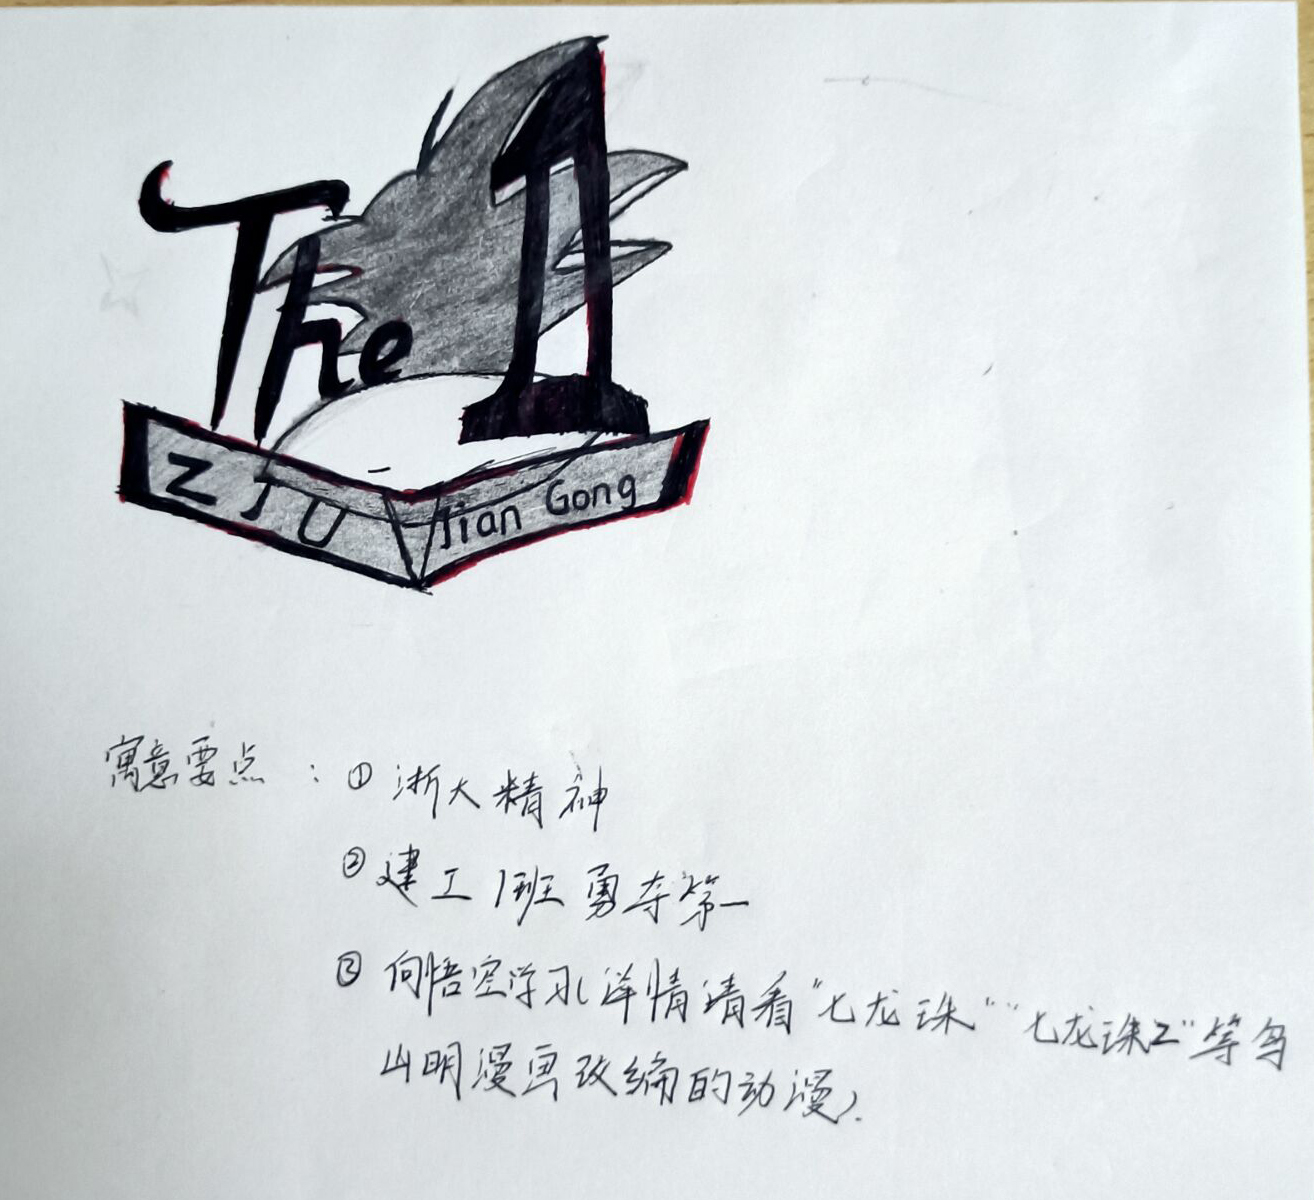 The 1
ZJU Jian Gong
寓意要点：① 浙大精神
② 建工1班勇夺第一
③ 向悟空学习(详情请看"七龙珠""七龙珠Z"等鸟
山明漫画改编的动漫)